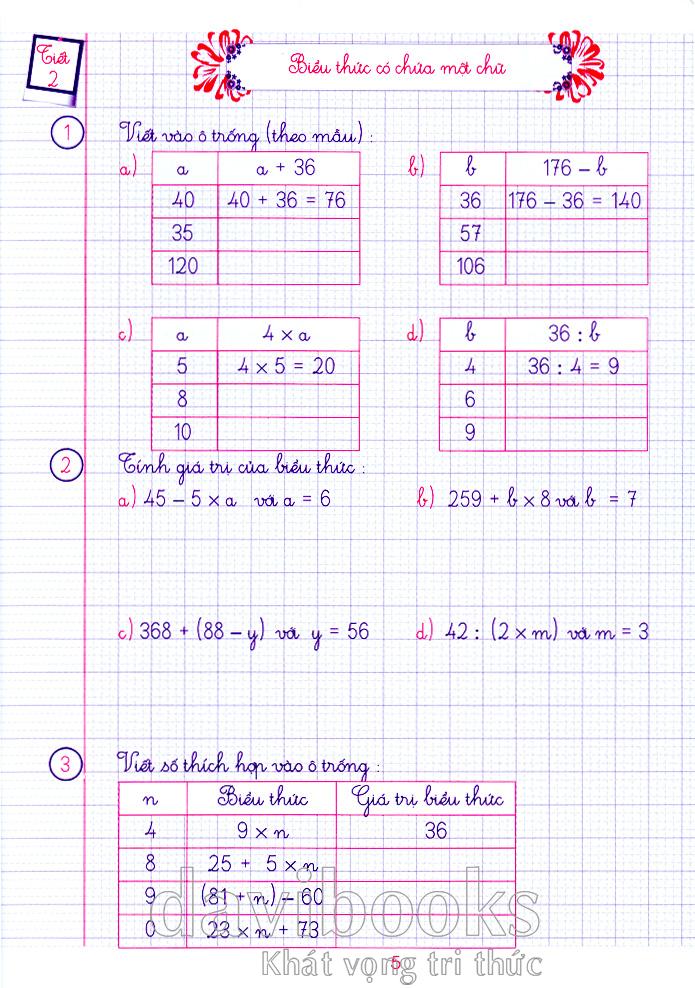 Tiết
2
Biểu thức có chứa một chữ
1 Viết vào ô trống (theo mẫu) :
a) a a + 36
40 40 + 36 = 76
35
120
b) b 176 – b
36 176 – 36 = 140
57
106
c) a 4 × a
5 4 × 5 = 20
8
10
d) b 36 : b
4 36 : 4 = 9
6
9
2 Tính giá trị của biểu thức :
a) 45 – 5 × a với a = 6
b) 259 + b × 8 với b = 7
c) 368 + (88 – y) với y = 56
d) 42 : (2 × m) với m = 3
3 Viết số thích hợp vào ô trống :
n Biểu thức Giá trị biểu thức
4 9 × n 36
8 25 + 5 × n
9 (81 + n) – 60
0 23 × n + 73
davibooks
Khát vọng tri thức
5